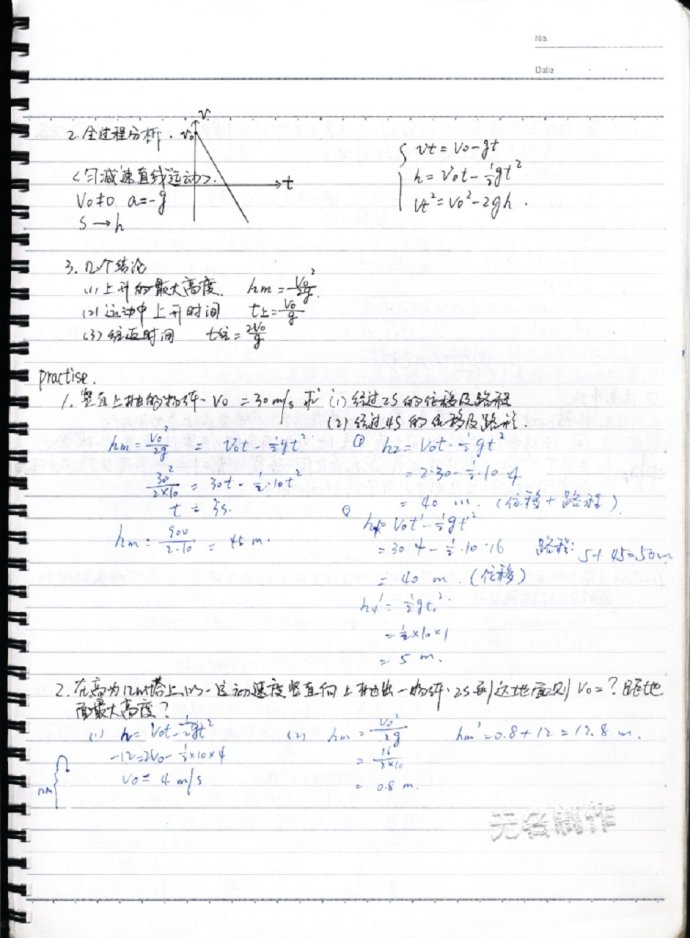 No.
Date
2. 全过程分析.
v
v₀
t
<匀减速直线运动>.
V₀≠0 a=-g
S→h
Vt = V₀-gt
h = V₀t-½gt²
Vt²=V₀²-2gh.
3. 几个结论
(1) 上升的最大高度. hm = V₀²/2g
(2) 运动中上升时间 t上=V₀/g
(3) 往返时间 t往=2V₀/g
practise.
1. 竖直上抛的物体. V₀ = 30m/s 求 (1) 经过2S的位移及路程
(2) 经过4S的位移及路程.
hm = V₀²/2g = V₀t-½gt²
30²/2×10 = 30t-½·10t²
t = 3s.
hm = 900/2·10 = 45 m.
① h₂= V₀t-½gt²
=2·30-½·10·4
= 40 m. (位移+路程)
② h₄= V₀t-½gt²
=30·4-½·10·16
= 40 m. (位移)
路程: 5+45=50m
h₄'= ½gt₁²
=½×10×1
= 5 m.
2. 在高为12m塔上,以一定动速度竖直向上抛出一物体. 2S到达地面则 V₀=? 距地
面最大高度?
(1) h= V₀t-½gt²
-12=2V₀-½×10×4
V₀= 4 m/s
(2) hm = V₀²/2g
= 16/2×10
= 0.8 m.
hm'=0.8+12=12.8 m.
12m
无名制作